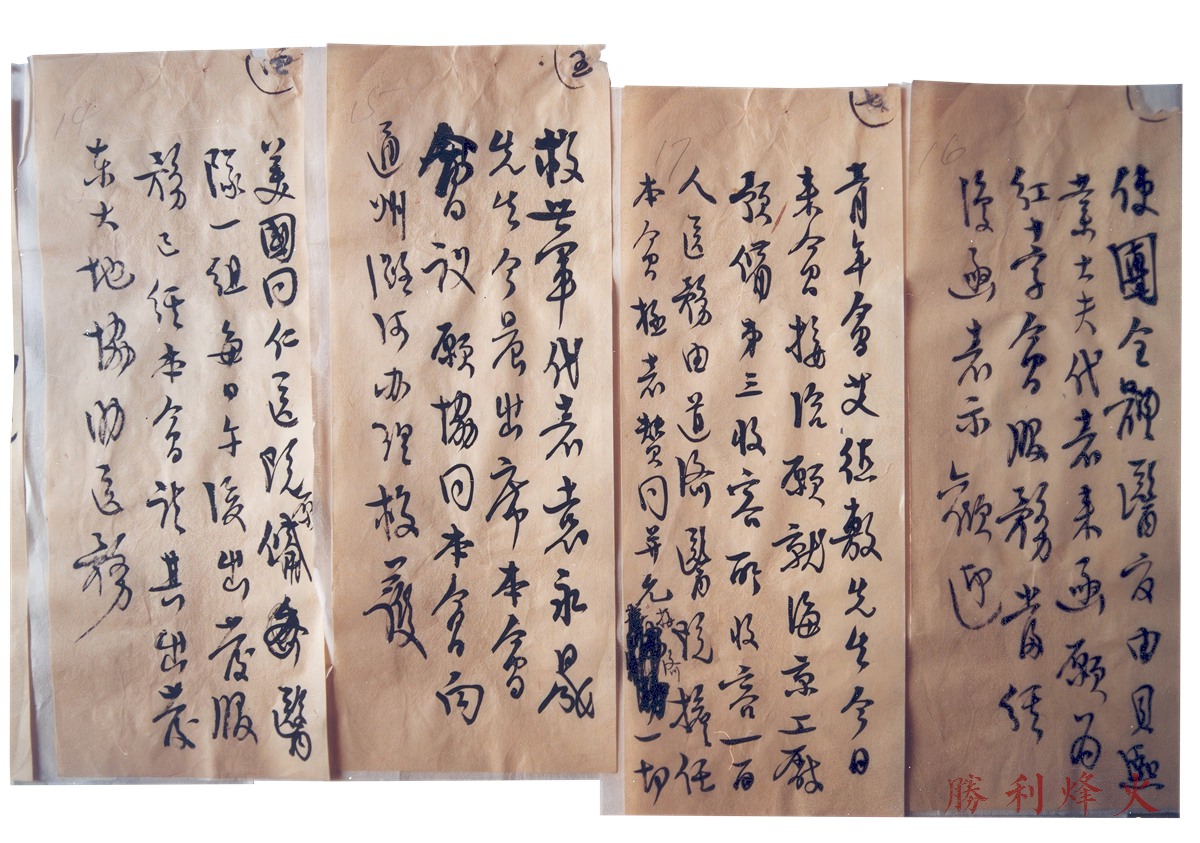 16
使團全體醫由貝熙
業大夫代表来函願為
紅十字會服務當經
復函表示歡迎
17
青年會艾德敷先生今日
来會接洽願就海京工廠
預備第三收容所收容一百
人医務由道濟醫院擔任
本會極表贊同并允接濟一切
15
救世軍代表袁永晟
先生今晨出席本會
會议願協同本會向
通州潞河办理救護
14
美國同仁医院原備醫
隊一組每日午後出發服
務已經本會請其出發
东大地協助医務
勝利烽火